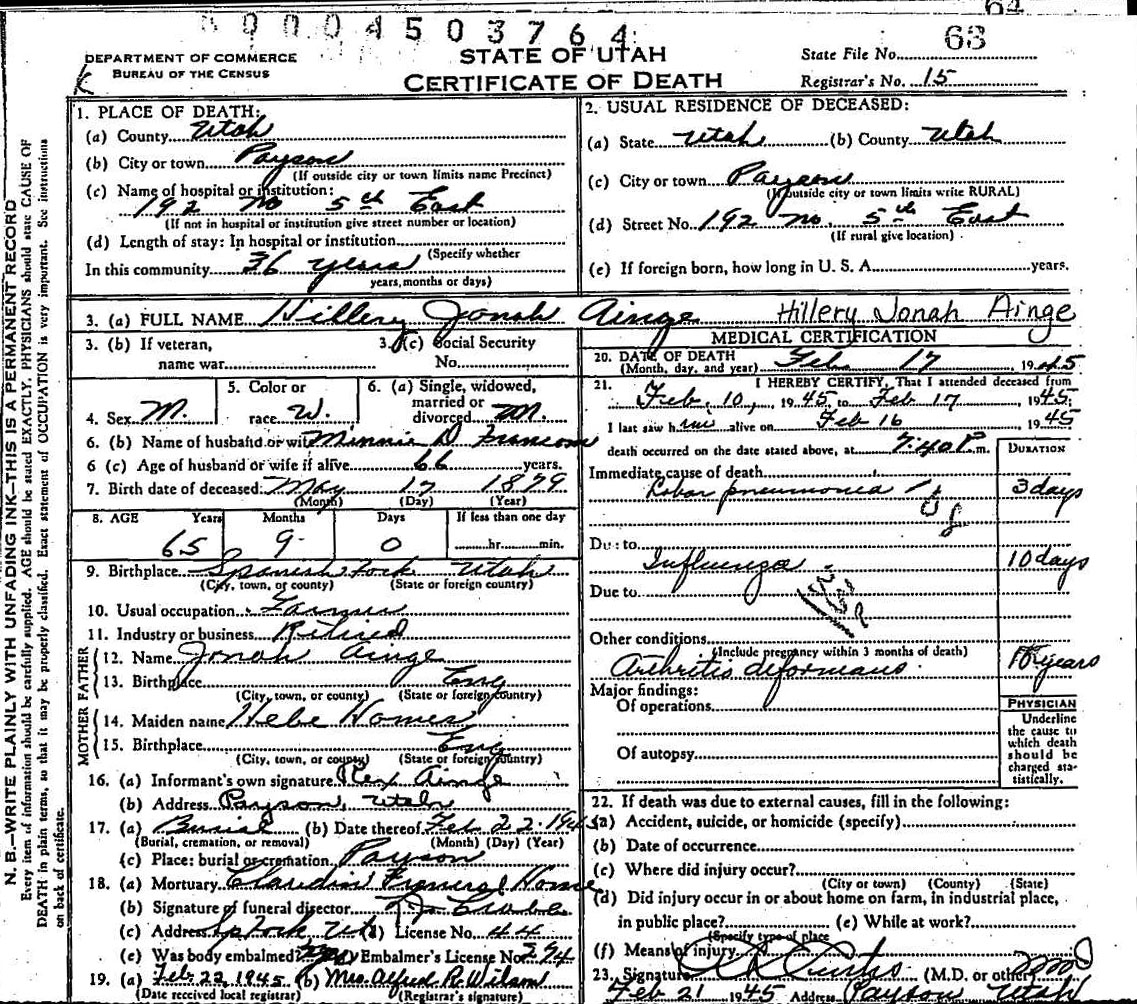 64
00004503764
63
DEPARTMENT OF COMMERCE
BUREAU OF THE CENSUS
STATE OF UTAH
CERTIFICATE OF DEATH
State File No.
Registrar's No. 15
K
N. B.—WRITE PLAINLY WITH UNFADING INK—THIS IS A PERMANENT RECORD
Every item of information should be carefully supplied. AGE should be stated EXACTLY. PHYSICIANS should state CAUSE OF
DEATH in plain terms, so that it may be properly classified. Exact statement of OCCUPATION is very important. See instructions
on back of certificate.
1. PLACE OF DEATH:
(a) County Utah
(b) City or town Payson
(If outside city or town limits name Precinct)
(c) Name of hospital or institution:
192 No 5th East
(If not in hospital or institution give street number or location)
(d) Length of stay: In hospital or institution
(Specify whether
In this community 36 years
years, months or days)
2. USUAL RESIDENCE OF DECEASED:
(a) State Utah (b) County Utah
(c) City or town Payson
(If outside city or town limits write RURAL)
(d) Street No. 192 No. 5th East
(If rural give location)
(e) If foreign born, how long in U. S. A. years.
3. (a) FULL NAME Hillery Jonah Ainge Hillery Jonah Ainge
3. (b) If veteran,
name war
3. (c) Social Security
No.
4. Sex M.
5. Color or
race W.
6. (a) Single, widowed,
married or
divorced M.
6. (b) Name of husband or wife Minnie D. Francom
6 (c) Age of husband or wife if alive 66 years.
7. Birth date of deceased: May 17 1879
(Month) (Day) (Year)
8. AGE Years Months Days If less than one day
65 9 0 hr. min.
9. Birthplace Spanish Fork Utah
(City, town, or county) (State or foreign country)
10. Usual occupation Farmer
11. Industry or business Retired
FATHER
12. Name Jonah Ainge
13. Birthplace Eng
(City, town, or county) (State or foreign country)
MOTHER
14. Maiden name Hebe Homes
15. Birthplace Eng
(City, town, or county) (State or foreign country)
16. (a) Informant's own signature Rex Ainge
(b) Address Payson, Utah
17. (a) Burial (b) Date thereof Feb 22-1945
(Burial, cremation, or removal) (Month) (Day) (Year)
(c) Place: burial or cremation Payson
18. (a) Mortuary Claudin Funeral Home
(b) Signature of funeral director
(c) Address Sp Fork Ut (d) License No. 44
(e) Was body embalmed? Embalmer's License No. 294
19. (a) Feb 22, 1945 (b) Mrs. Alfred R. Wilson
(Date received local registrar) (Registrar's signature)
MEDICAL CERTIFICATION
20. DATE OF DEATH
(Month, day, and year) Feb 17 1945
21. I HEREBY CERTIFY, That I attended deceased from
Feb. 10, 1945, to Feb 17 1945;
I last saw him alive on Feb 16 1945
death occurred on the date stated above, at 7:40 P. m.
DURATION
Immediate cause of death
Lobar pneumonia 3 days
Due to
Influenza 10 days
Due to
Other conditions
(Include pregnancy within 3 months of death)
Arthritis deformans. years
Major findings:
Of operations
Of autopsy
PHYSICIAN
Underline
the cause to
which death
should be
charged sta-
tistically.
22. If death was due to external causes, fill in the following:
(a) Accident, suicide, or homicide (specify)
(b) Date of occurrence
(c) Where did injury occur?
(City or town) (County) (State)
(d) Did injury occur in or about home on farm, in industrial place,
in public place? (e) While at work?
(Specify type of place
(f) Means of injury
23. Signature Curtis (M.D. or other) MD
Feb 21 1945 Address Payson Utah